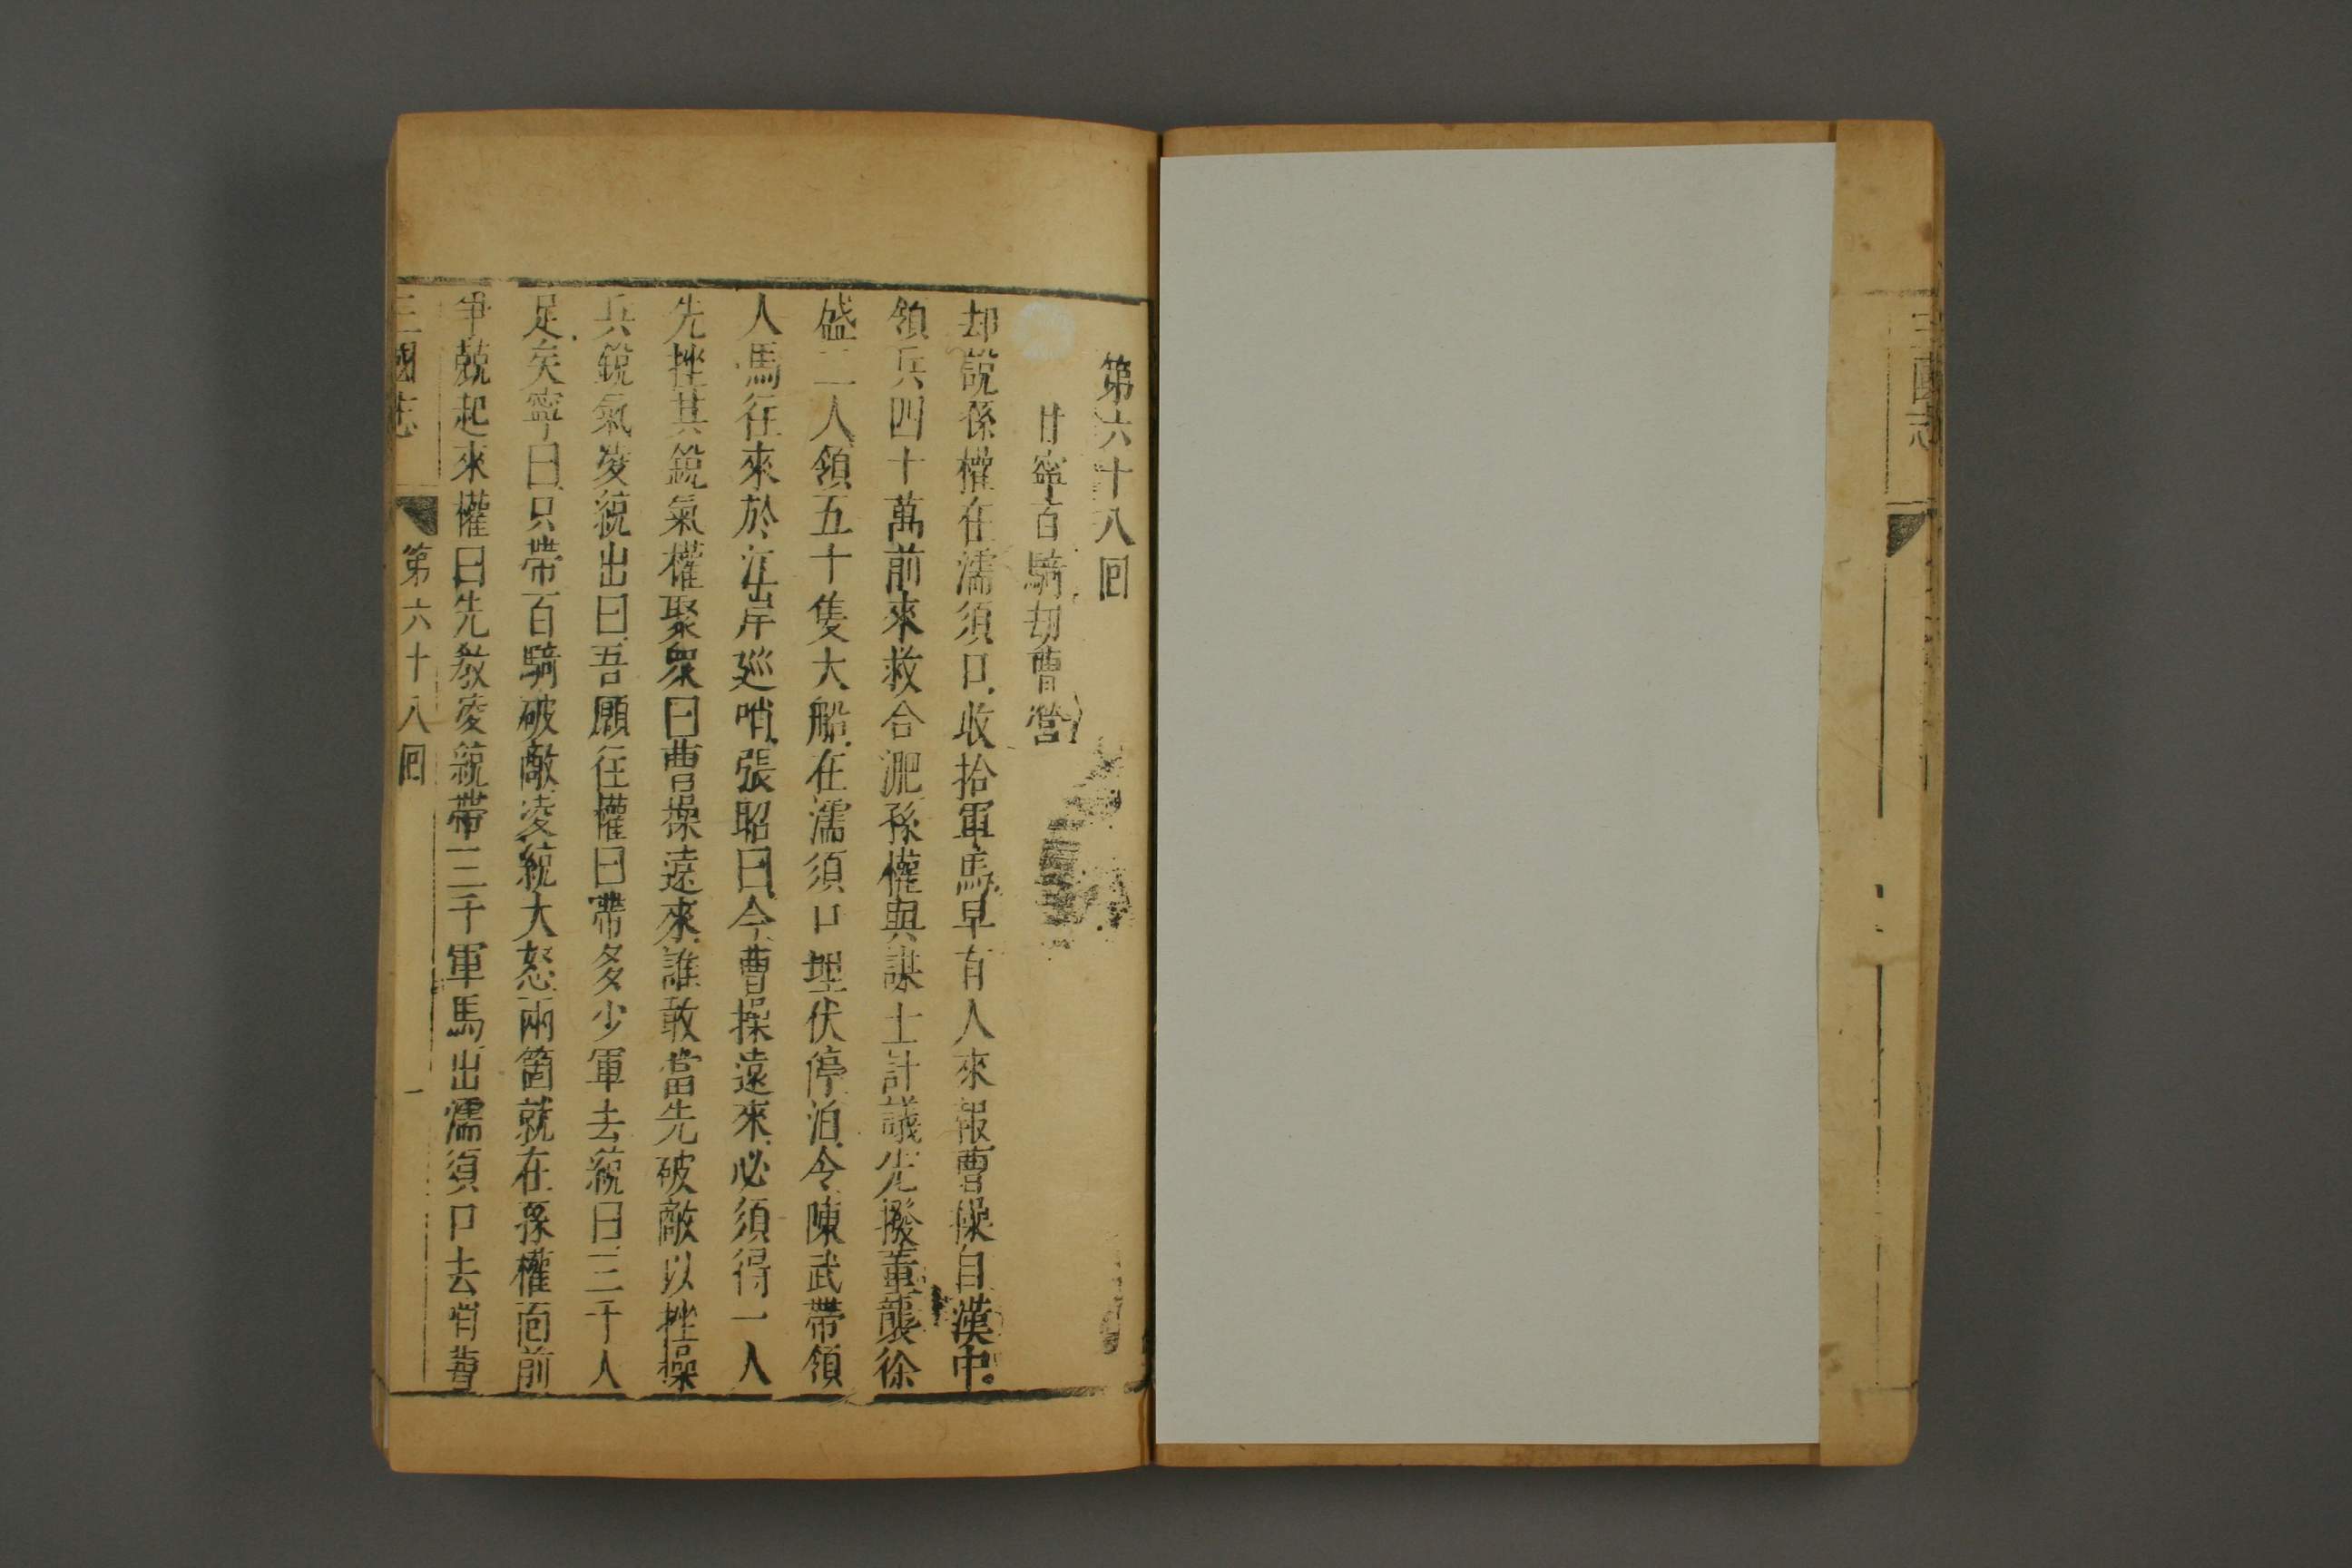 第六十八回
甘寧百騎刼曹營
却說孫權在濡須口收拾軍馬早有人來報曹操自漢中
領兵四十萬前來救合淝孫權與謀士計議先撥董襲徐
盛二人領五十隻大船在濡須口埋伏停泊令陳武帶領
人馬往來於江岸巡哨張昭曰今曹操遠來必須得一人
先挫其銳氣權聚衆曰曹操遠來誰敢當先破敵以挫操
兵銳氣凌統出曰吾願往權曰帶多少軍去統曰三千人
足矣寧曰只帶百騎破敵凌統大怒兩箇就在孫權面前
爭兢起來權曰先教凌統帶三千軍馬出濡須口去哨曹
三國志 第六十八回 一
三國志